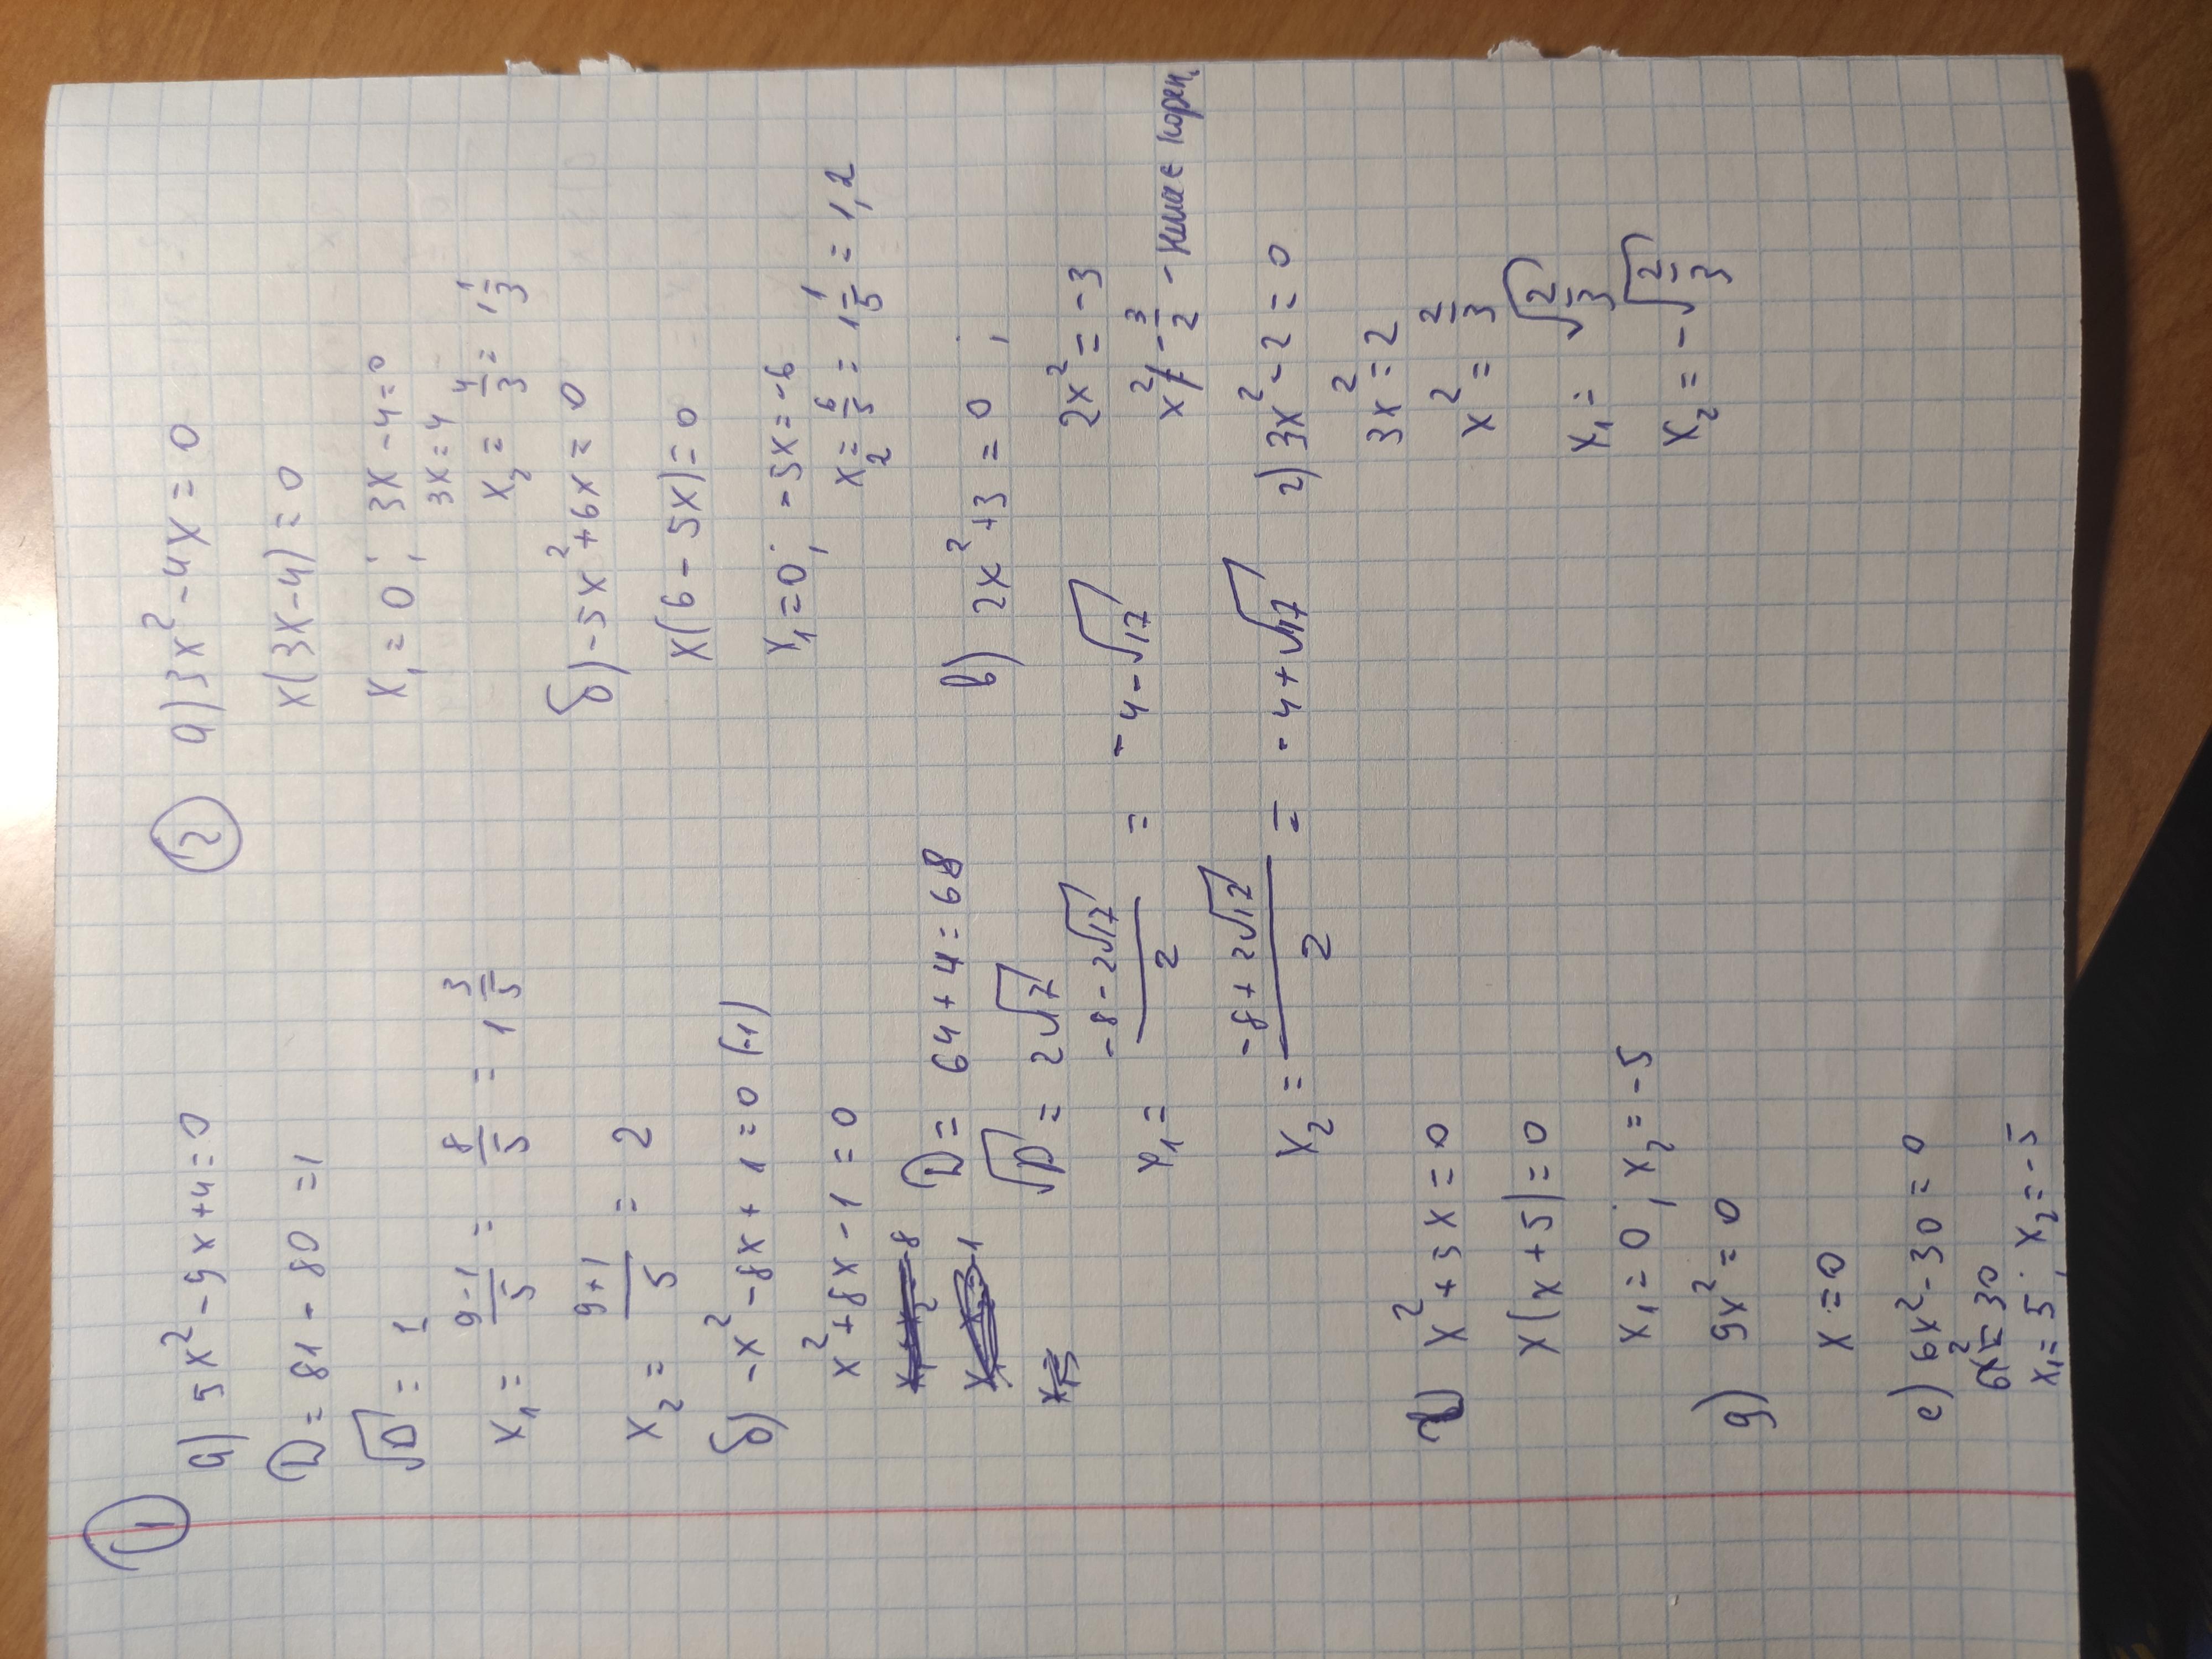 1
а) 5x² - 9x + 4 = 0
D = 81 - 80 = 1
√D = 1
x₁ = (9-1)/5 = 8/5 = 1 3/5
x₂ = (9+1)/5 = 2
б) -x² - 8x + 1 = 0 (-1)
x² + 8x - 1 = 0
D = 64 + 4 = 68
√D = 2√17
x₁ = (-8 - 2√17)/2 = -4 - √17
x₂ = (-8 + 2√17)/2 = -4 + √17
г) x² + 5x = 0
x(x + 5) = 0
x₁ = 0; x₂ = -5
д) 9x² = 0
x = 0
е) 6x² - 30 = 0
6x² = 30
x₁ = 5; x₂ = -5
2
а) 3x² - 4x = 0
x(3x - 4) = 0
x₁ = 0; 3x - 4 = 0
3x = 4
x₂ = 4/3 = 1 1/3
б) -5x² + 6x = 0
x(6 - 5x) = 0
x₁ = 0; -5x = -6
x₂ = 6/5 = 1 1/5 = 1,2
в) 2x² + 3 = 0;
2x² = -3
x² ≠ -3/2 - немає корен.
г) 3x² - 2 = 0
3x² = 2
x² = 2/3
x₁ = √2/3
x₂ = -√2/3